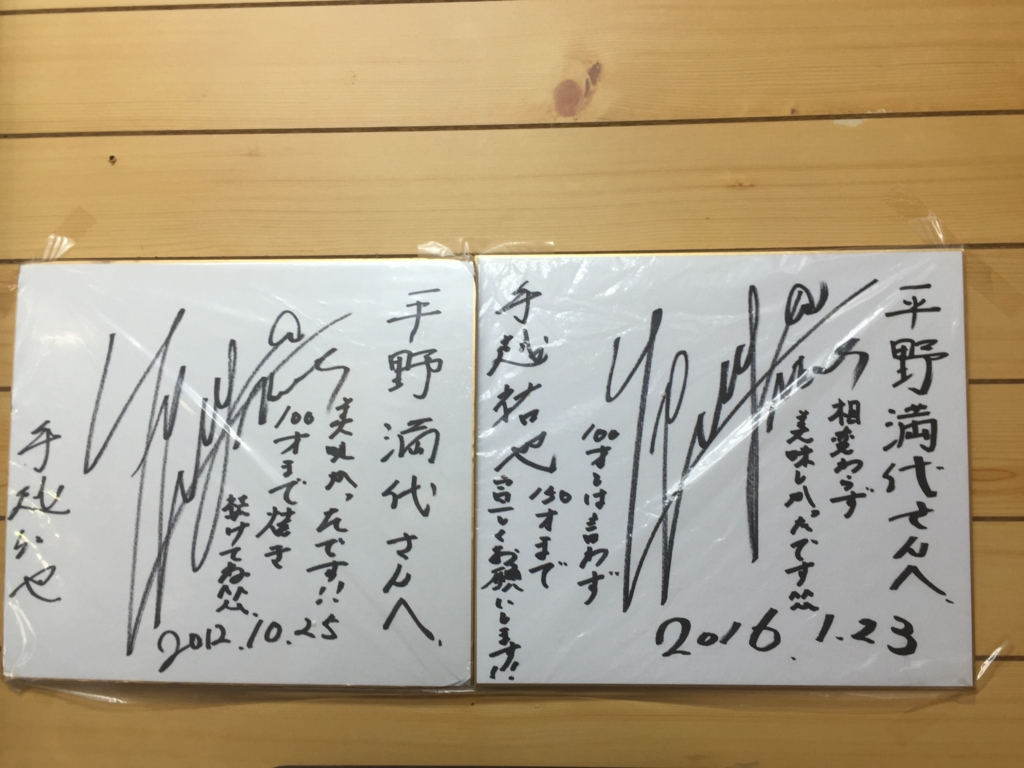 平野満代さんへ
美味かったです!!
100才まで焼き
続けてね
2012.10.25
手越祐也
平野満代さんへ
相変わらず
美味しかったです
2016.1.23
100才とは言わず
150才まで
宜しくお願いします!!
手越祐也